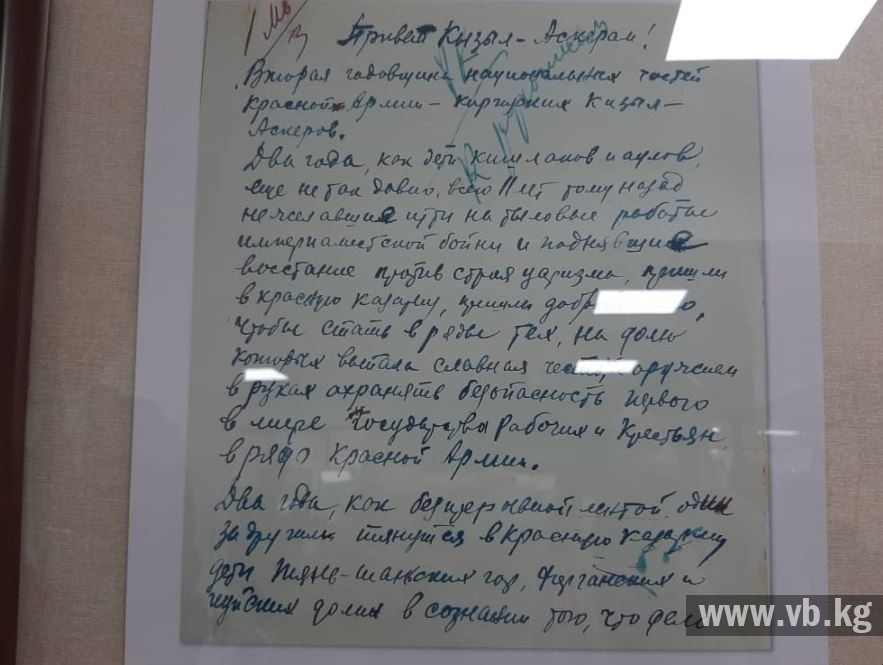 Привет Кызыл-Аскерам!
Вторая годовщина национальных частей
Красной Армии - киргизских Кизыл-
Аскеров.
Два года, как дети кишлаков и аулов,
еще не так давно, всего 11 лет тому назад
не желавшие идти на тыловые работы
империалистской бойни и поднявшие
восстание против строя царизма, пришли
в красную казарму, пришли
чтобы стать в ряды тех, на долю
которых выпала славная оружием
в руках охранять безопасность первого
в мире Государства Рабочих и Крестьян,
в ряды Красной Армии.
Два года, как беспрерывной лентой один
за другим тянутся в Красную казарму
дети Тянь-Шаньских гор, Ферганских и
Чуйских долин в сознании того, что
www.vb.kg